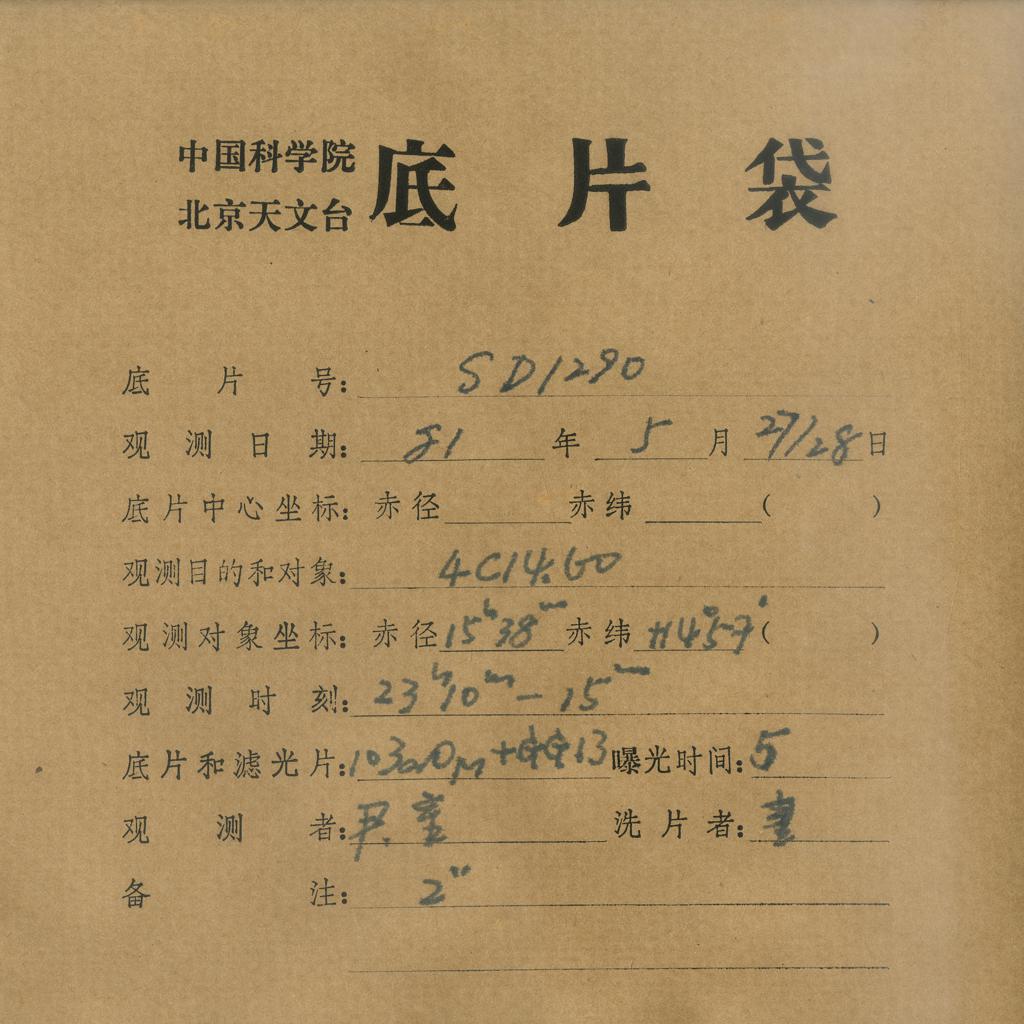 中国科学院
北京天文台
底片袋
底片号: SD1290
观测日期: 81 年 5 月 27/28 日
底片中心坐标: 赤径 赤纬 ( )
观测目的和对象: 4C14.60
观测对象坐标: 赤径 15ʰ38ᵐ 赤纬 +14°57′ ( )
观测时刻: 23ʰ10ᵐ — 15ᵐ
底片和滤光片: 103aO + GG13 曝光时间: 5
观测者: 洗片者:
备注: 2"